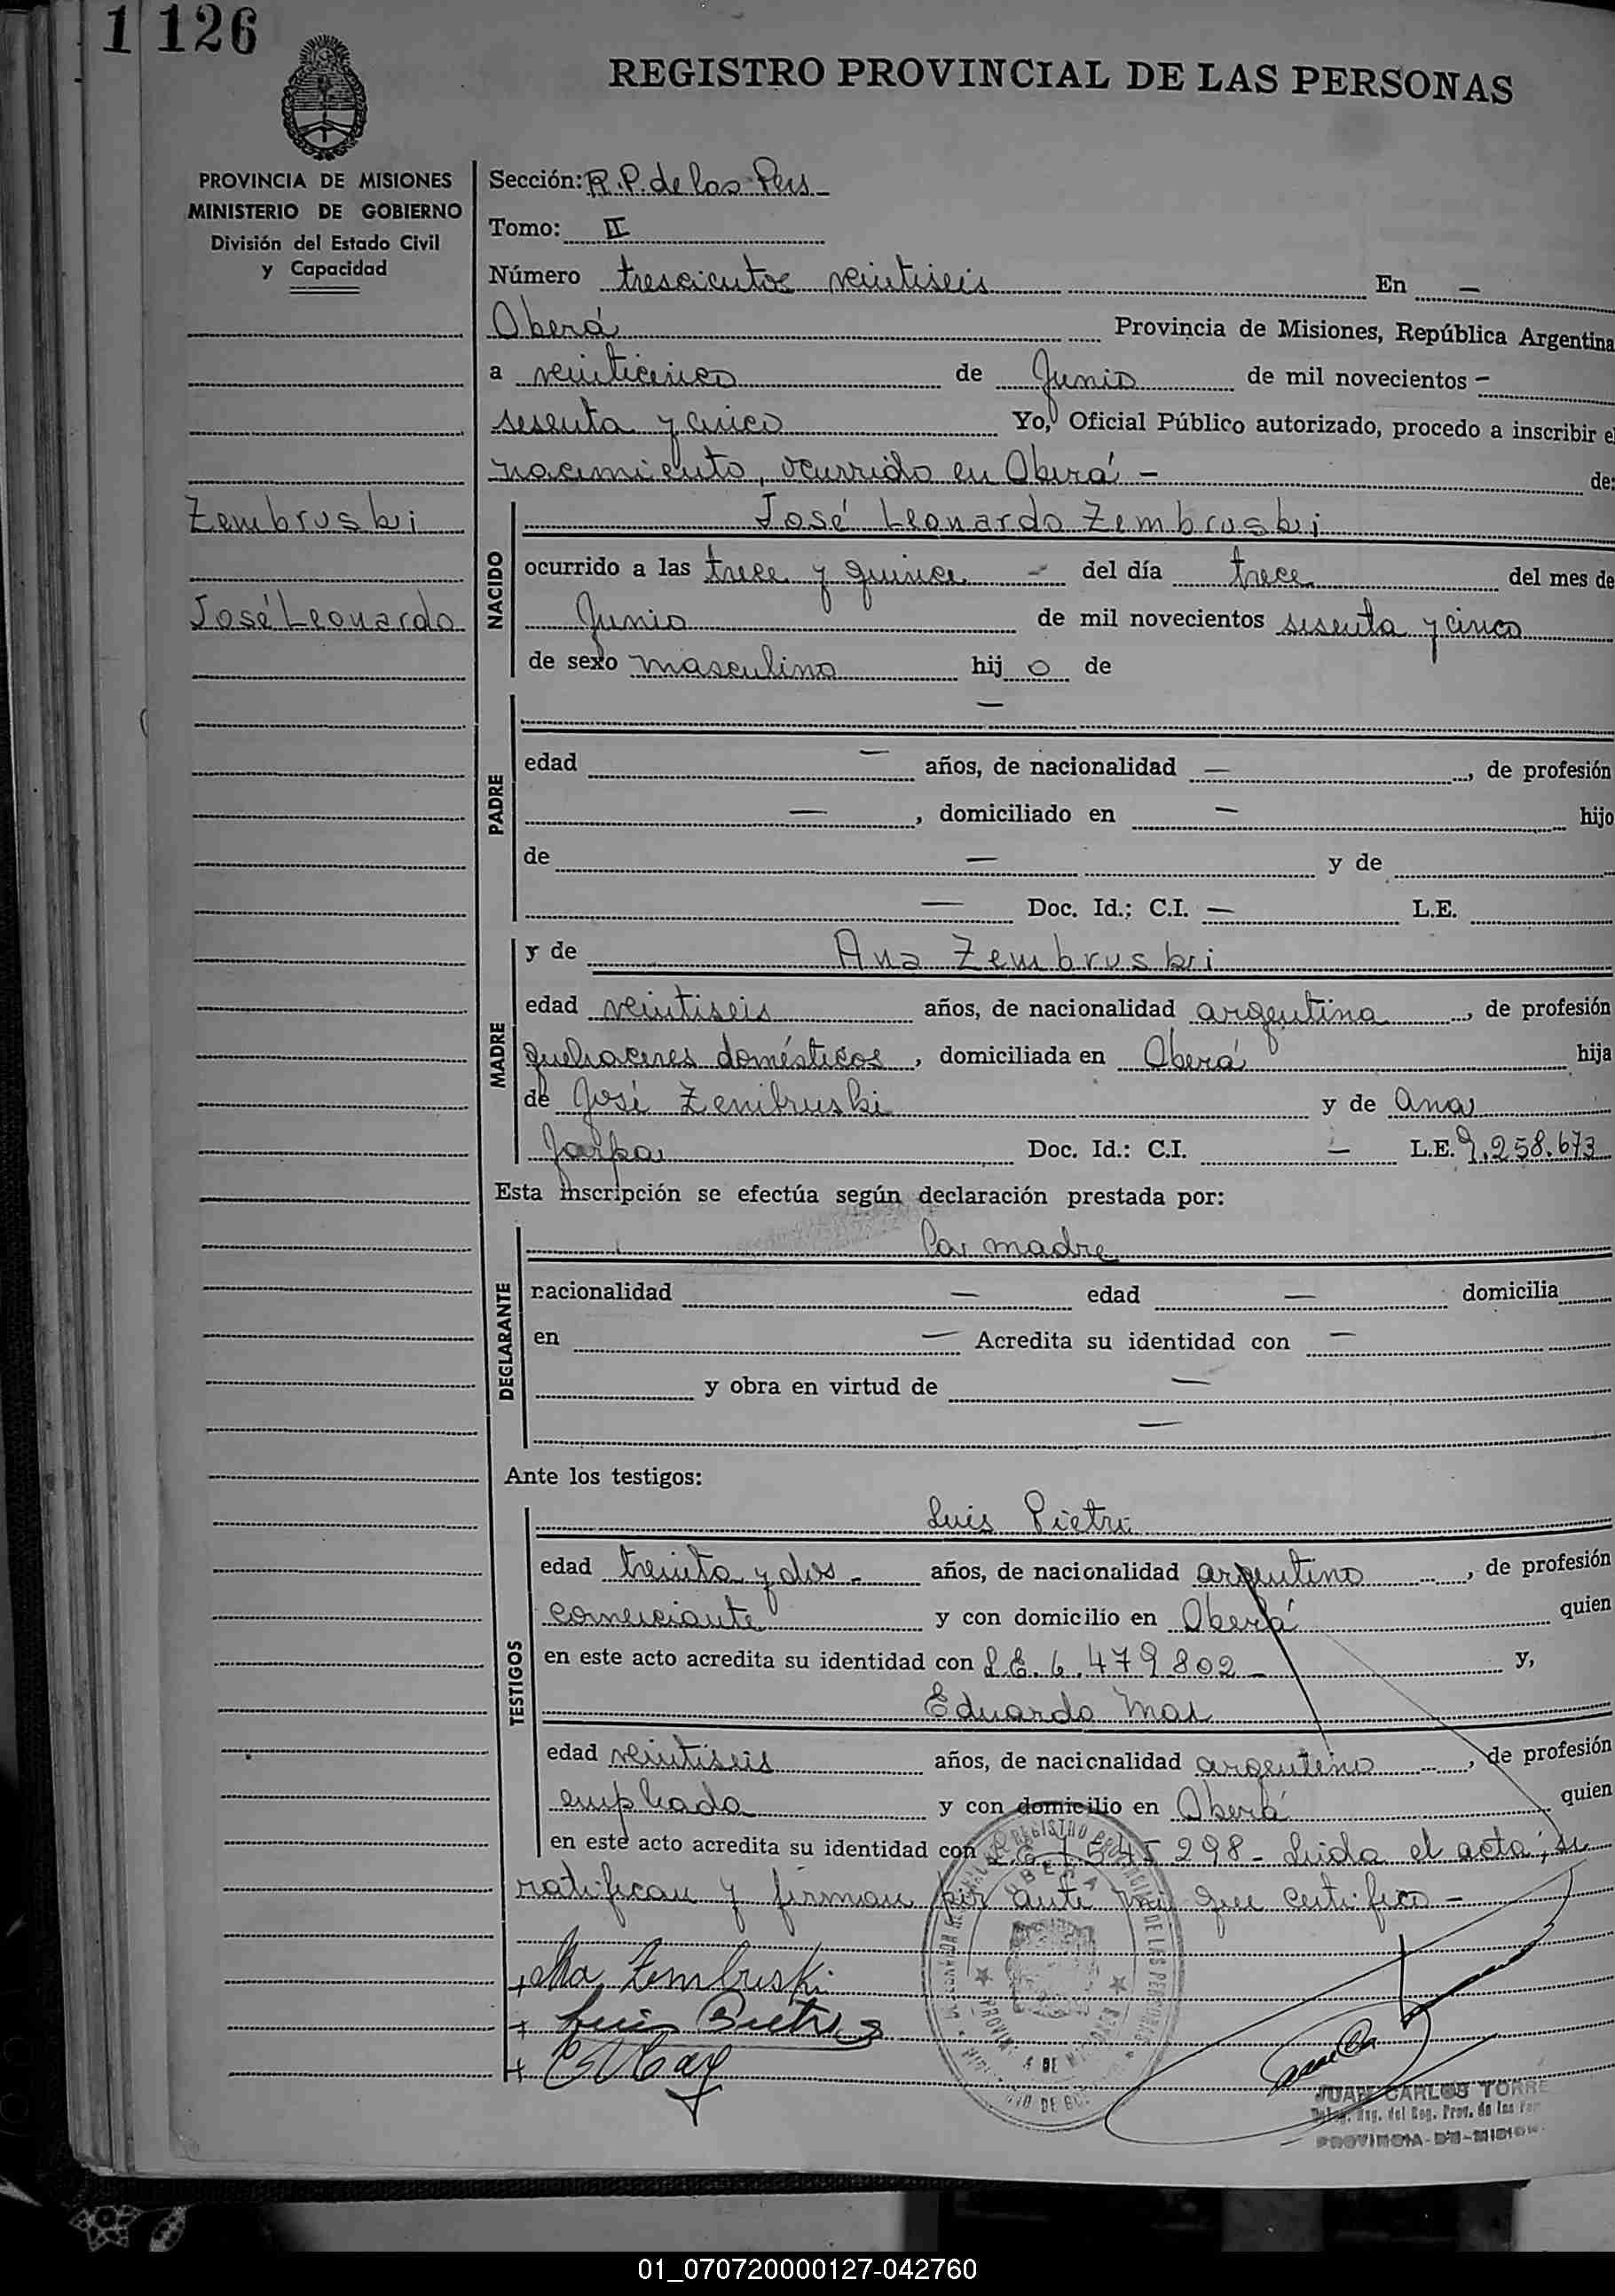 1 126
REGISTRO PROVINCIAL DE LAS PERSONAS
PROVINCIA DE MISIONES
MINISTERIO DE GOBIERNO
División del Estado Civil
y Capacidad
Sección: R.P. de las Pers
Tomo: II
Número trescientos veintiseis En —
Oberá Provincia de Misiones, República Argentina
a veinticinco de Junio de mil novecientos —
sesenta y cinco Yo, Oficial Público autorizado, procedo a inscribir el
nacimiento, ocurrido en Oberá — de:
Zembruski
José Leonardo
NACIDO
José Leonardo Zembruski
ocurrido a las trece y quince — del día trece del mes de
Junio de mil novecientos sesenta y cinco
de sexo masculino hijo de
PADRE
—
edad — años, de nacionalidad — , de profesión
— , domiciliado en — hijo
de — y de
— Doc. Id.: C.I. — L.E.
MADRE
y de Ana Zembruski
edad veintiseis años, de nacionalidad argentina , de profesión
quehaceres domésticos , domiciliada en Oberá hija
de José Zembruski y de Ana
Doc. Id.: C.I. — L.E. 9.258.673
Esta inscripción se efectúa según declaración prestada por:
DECLARANTE
La madre
nacionalidad — edad — domicilia
en — Acredita su identidad con —
y obra en virtud de —
—
Ante los testigos:
TESTIGOS
Luis Pietri
edad treinta y dos - años, de nacionalidad argentino , de profesión
comerciante y con domicilio en Oberá quien
en este acto acredita su identidad con L.E. 6.479802 - y,
Eduardo
edad veintiseis años, de nacionalidad argentino , de profesión
empleado y con domicilio en Oberá quien
en este acto acredita su identidad con 298 - Leida el acta, se
ratifican y firman por ante mi que certifico -
Ana Zembruski
Luis
JUAN CARLOS TORRE
Reg. Prov. de las Per
PROVINCIA DE MISION
01_070720000127-042760